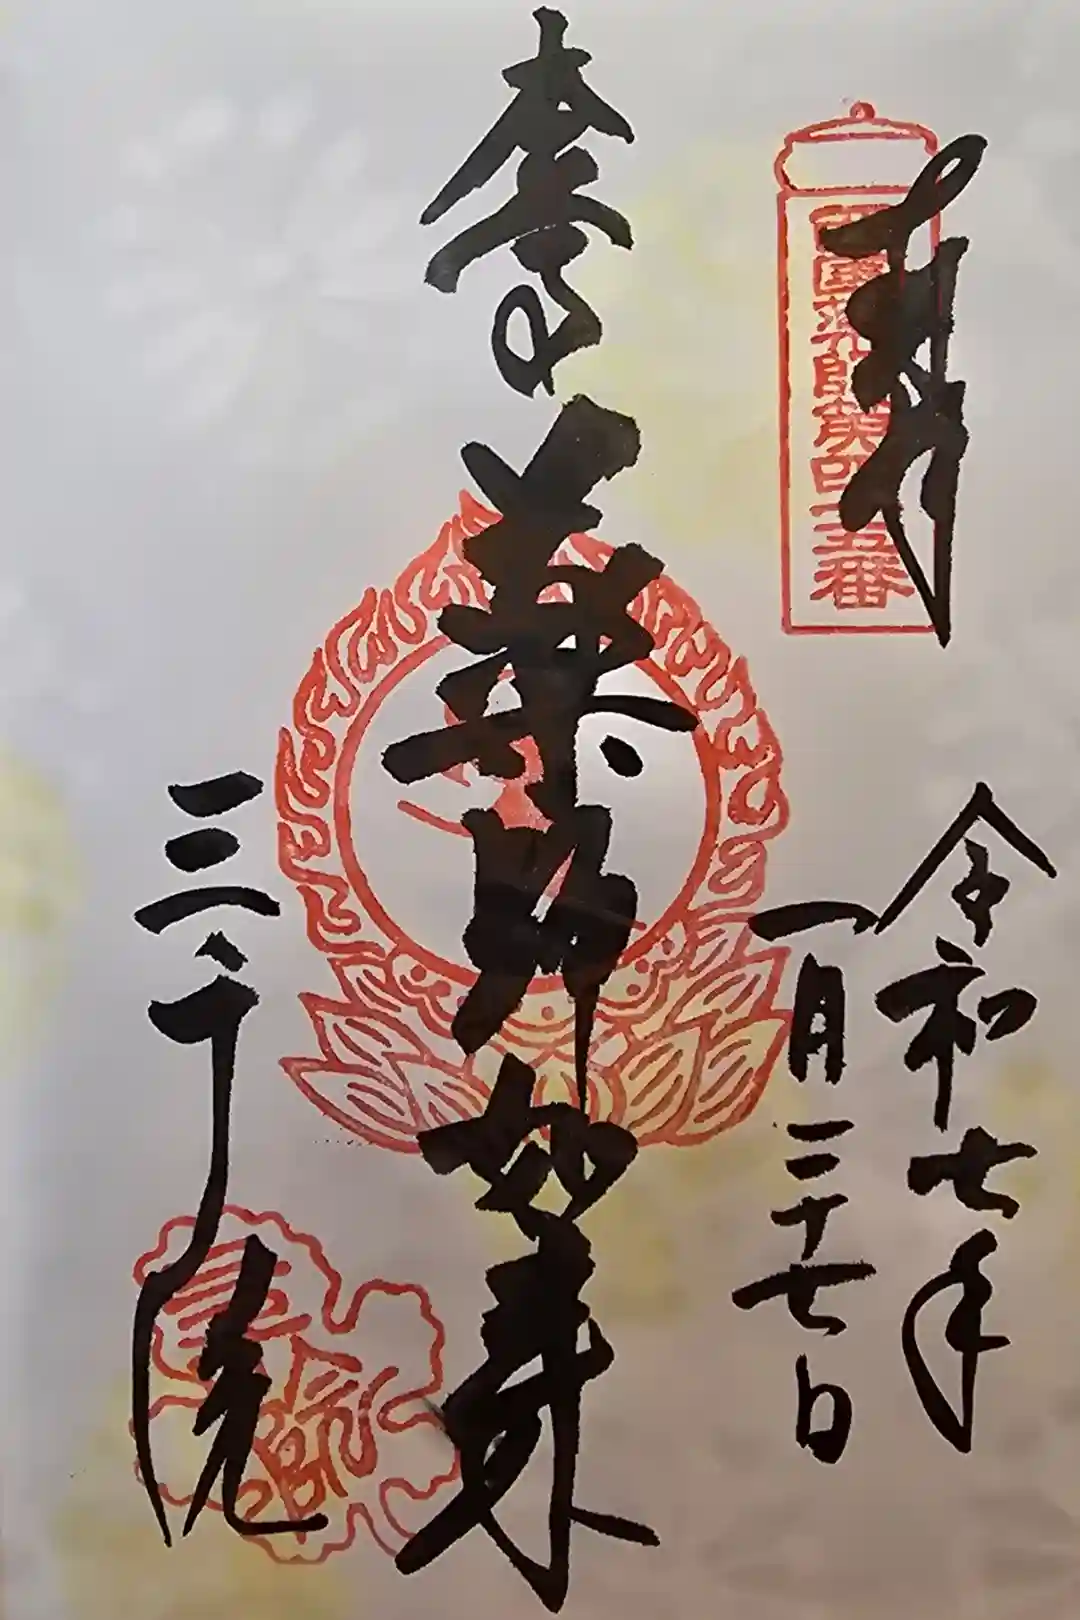 奉拝
西國薬師第四十五番
令和七年
一月二十七日
本尊
薬師如来
三千院